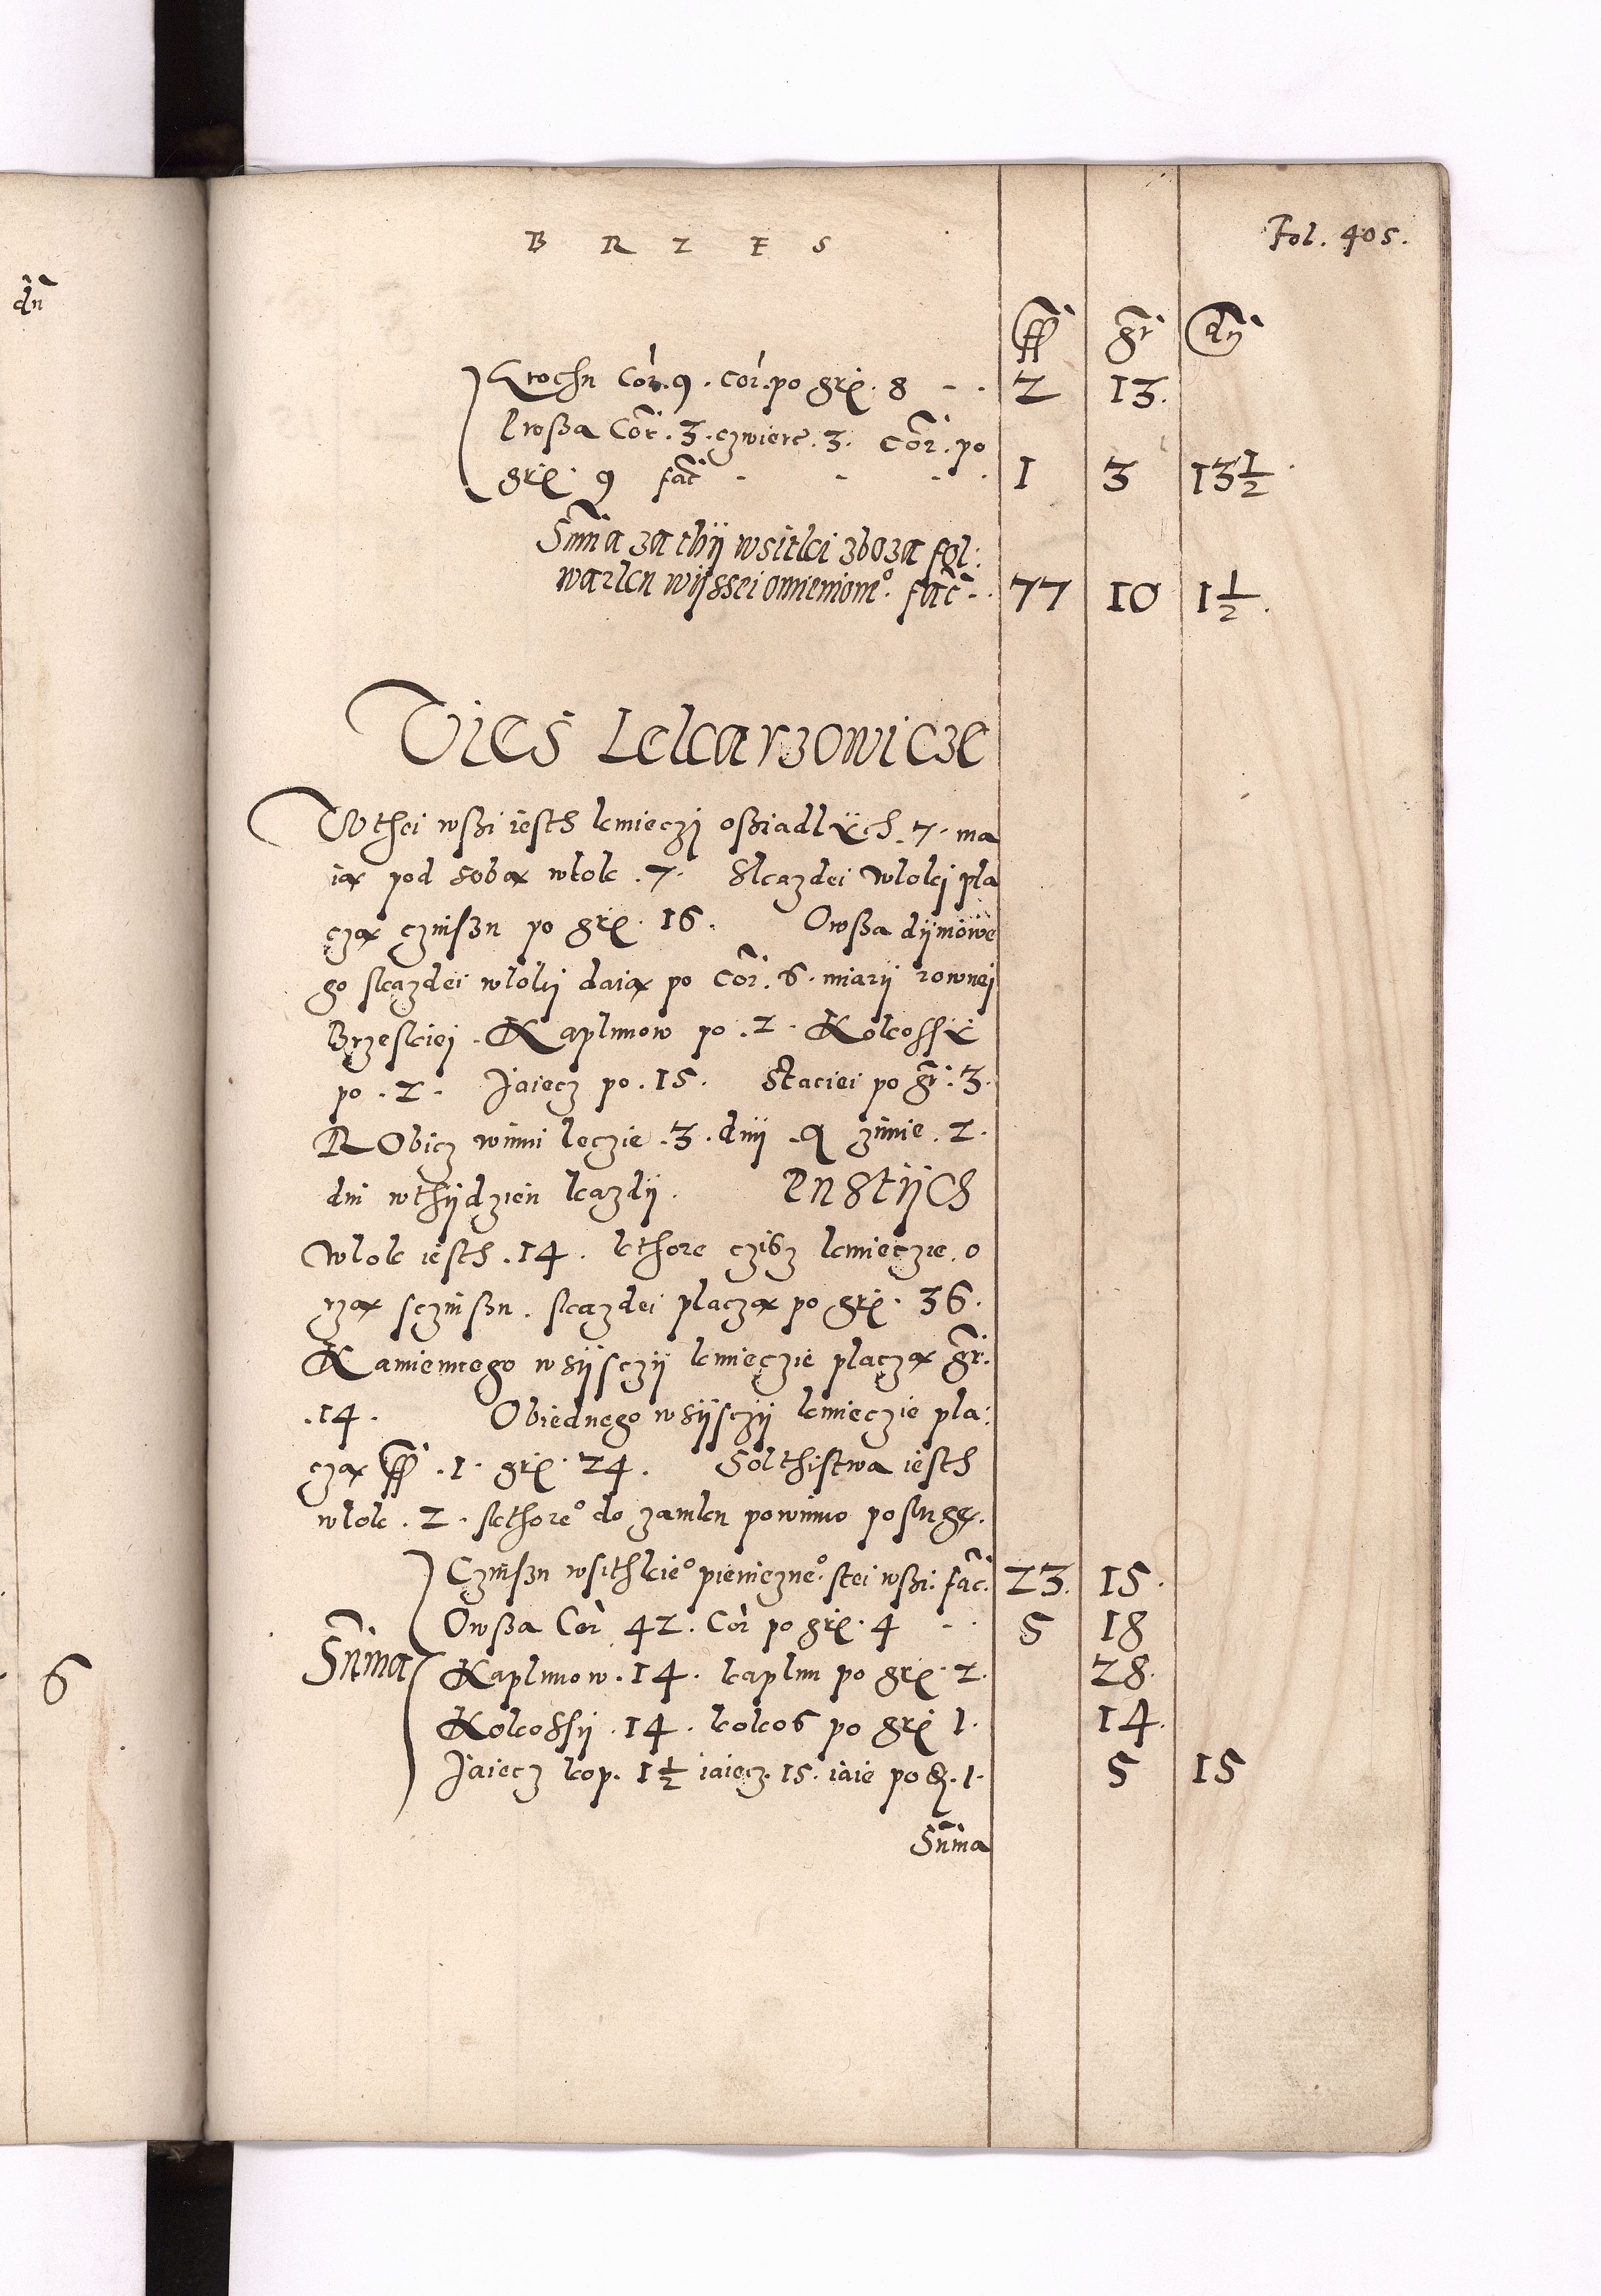 B R Z E S
Fol. 405.
dn̄
ff gr dn̄
Grochu Cor. 9. cor. po grē. 8 - - 2 13.
Prosza Cor. 3. czwierc. 3. Cor. po
grē. 9 fac̄ - - - 1 3 13½
Sūma za thÿ wsitki zboza fol:
warku wÿssei omieniono. fac̄ - 77 10 1½.
Vieś Lekarzowicze
W thei wßi iesth kmieczÿ oßiadlÿch. 7. ma
iąx pod sobąx wlok. 7. Skazdei wloki pla
czax czinszu po grē. 16. Owßa dÿmowe
go skazdei wloki daiax po Cor. 6. miarÿ rownei
Brzeskiej. Kaplunow po. 2. Kokossÿ
po. 2. Jaiecz po. 15. Staciei po gr. 3.
RObicz winni leczie. 3. dnÿ. A zimie. 2.
dni w thÿdzien kazdÿ. PustÿCh
wlok iesth. 14. kthore czisz kmieczie. o
rzax sczinszu. skazdei placzax po grē. 36.
Kamiennego wsÿsczÿ kmieczie placzax gr.
.14. Obiednego wsÿsczÿ kmieczie pla:
czax ff. 1. grē. 24. Solthistwa iesth
wlok. 2. skthore° do zamku powinno poslugę.
Czinszu wsithkie° pieniezne° stei wßi. fac̄. 23. 15.
Owßa Cor 42. Cor po grē. 4 - - 5 18
Sūma
Kaplunow. 14. kaplun po grē. 2. 28.
Kokossÿ. 14. kokos po grē 1. 14.
Jaiecz kop. 1½ iaiecz. 15. iaie po d. 1. 5 15
Sūma
6